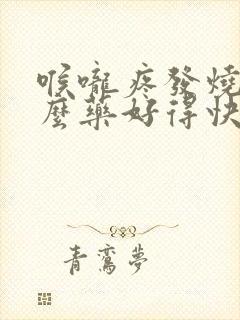 喉嚨疼發燒
麼藥好得快
青鸞夢